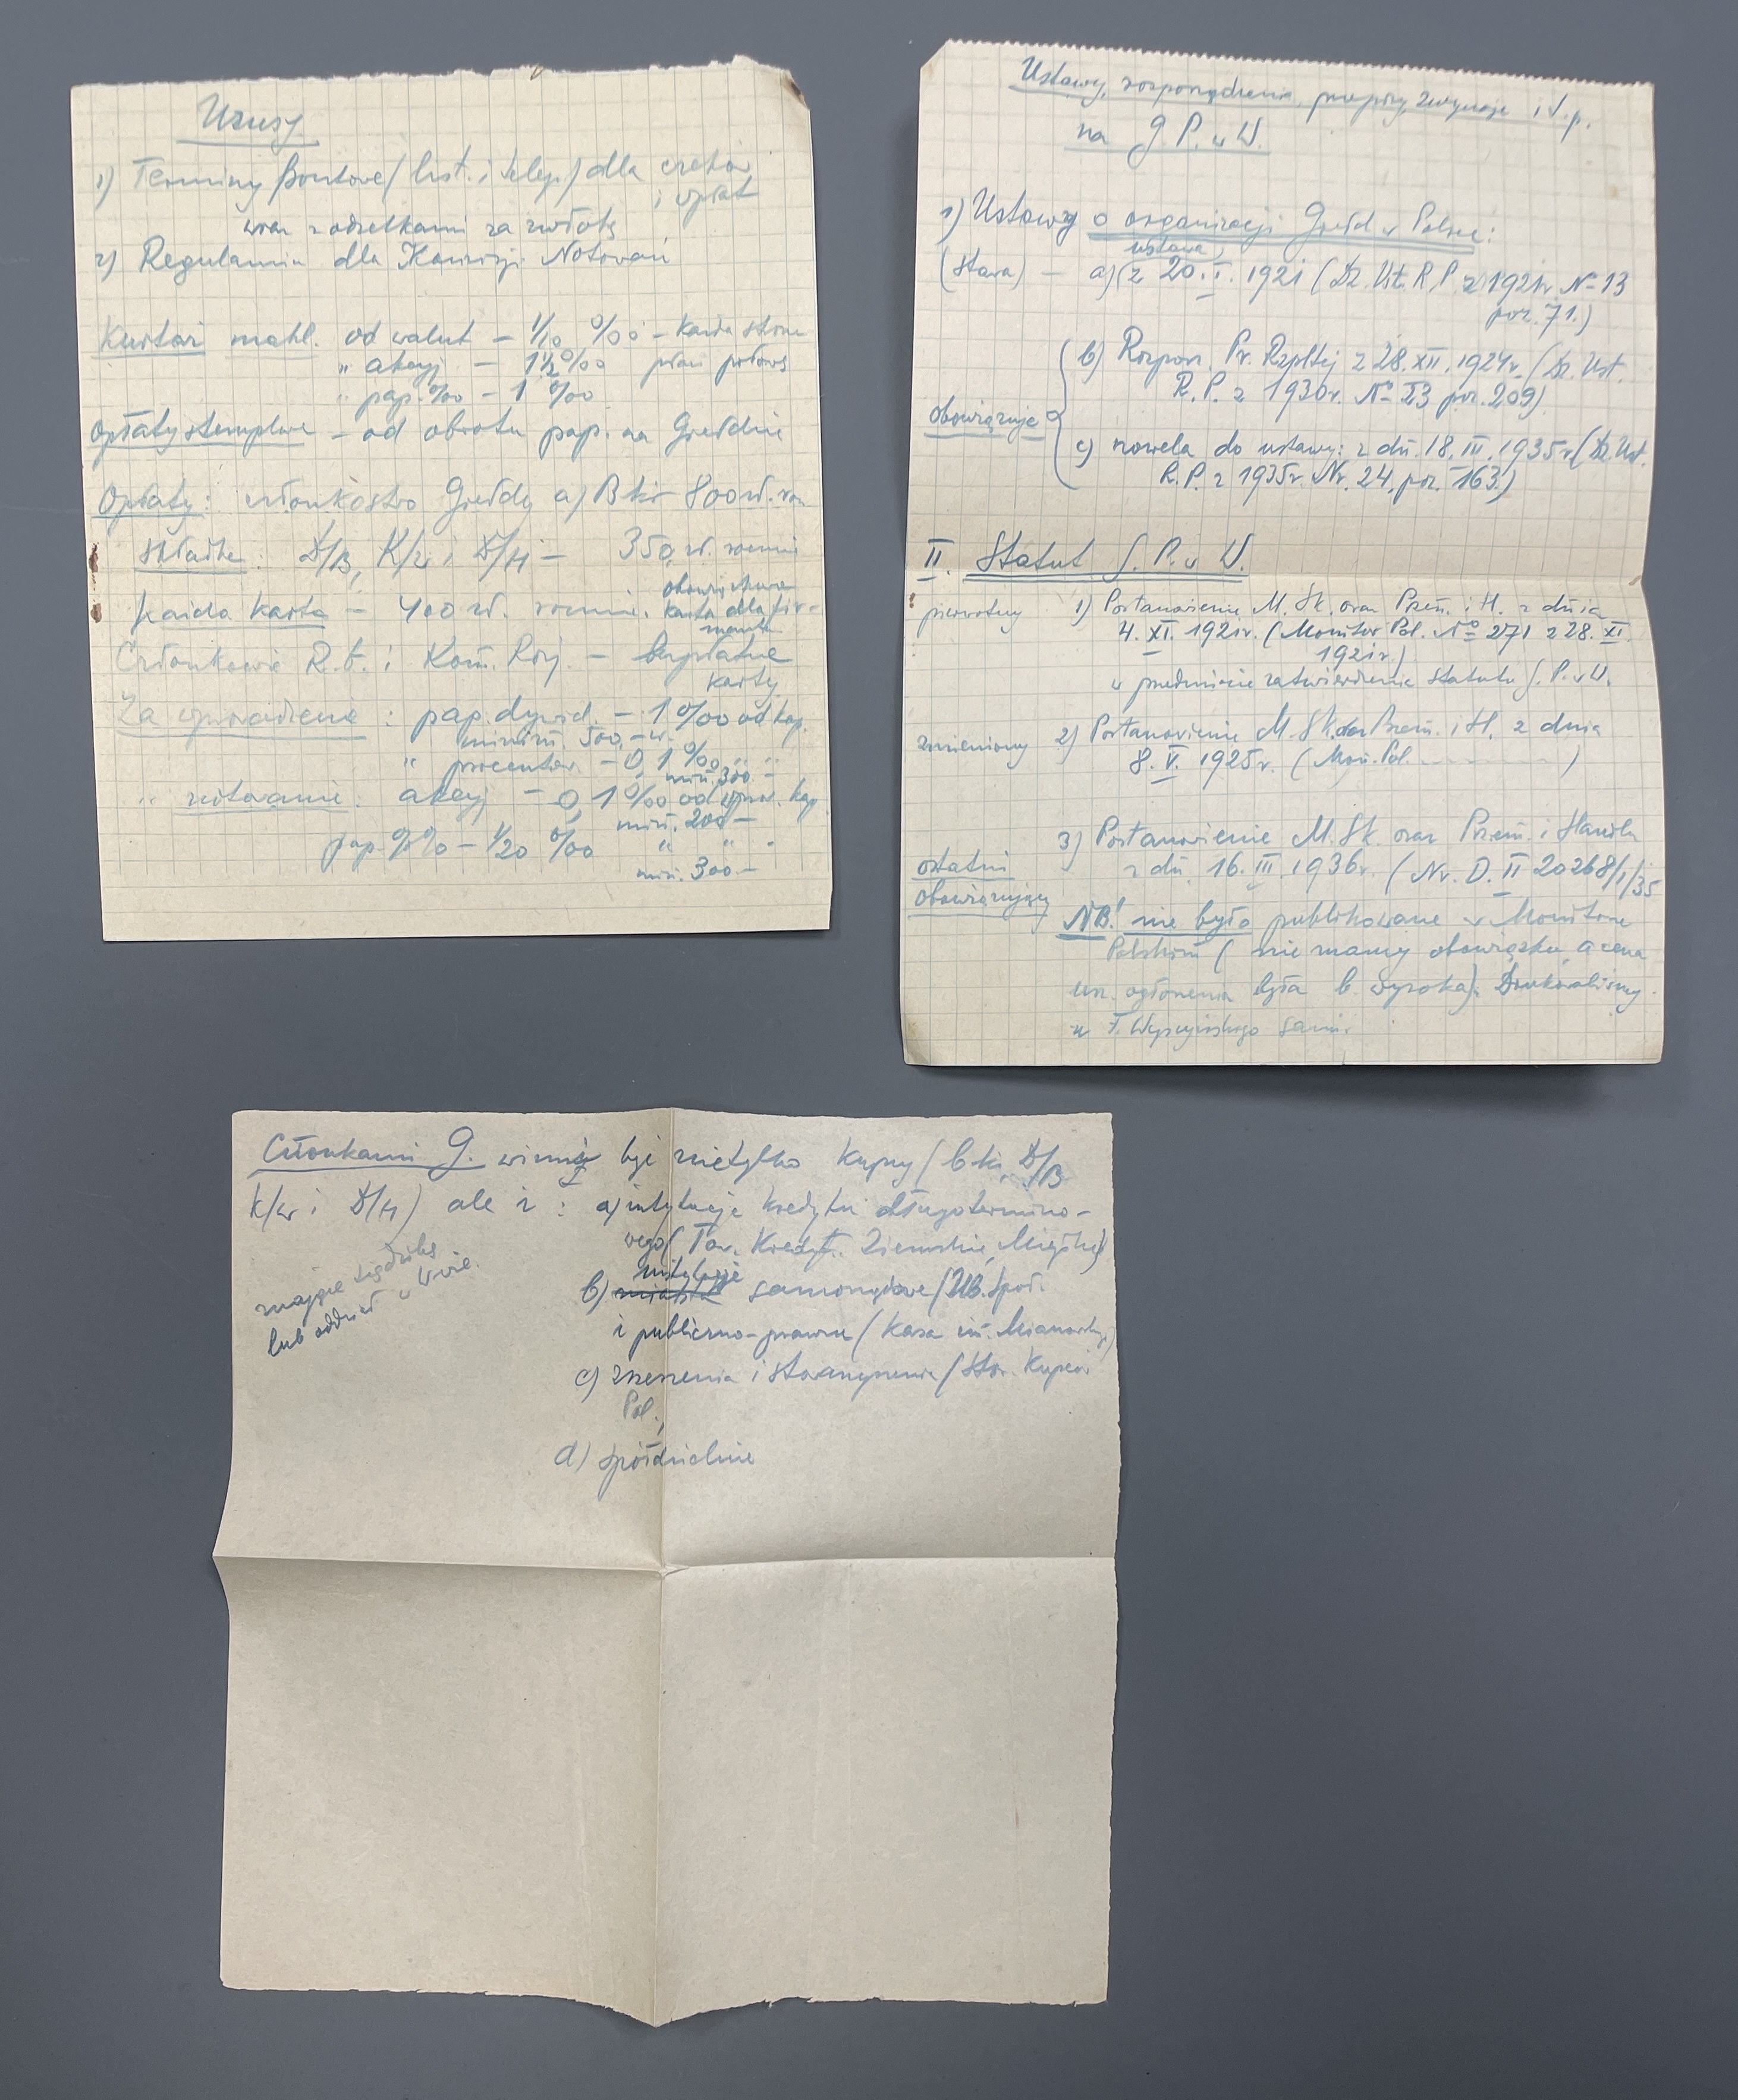 Uzusy
1) Terminy portowe (list. i telegr.) dla czeków
i wpłat
wraz z odsetkami za zwłokę
2) Regulamin dla Komisji Notowań
Kurtaż makl. od walut – 1/10 ‰ – Każda strona
" akcyj – 1½‰ płaci połowę
" pap.% – 1 ‰
Opłaty stemplowe – od obrotu pap. na Giełdzie
Opłaty: członkostwo Giełdy a) Bki 800 zł. rocz
składka: D/B, K/w i D/H – 350 zł. rocznie
każda karta – 400 zł. rocznie.
obowiązkowa
karta dla fir-
manta
Członkowie R.G. i Kom. Rozj. – bezpłatne
karty
Za wprowadzenie: pap. dywid. – 1 ‰ od kap.
minim. 500,– zł.
" procentow. – 0,1 ‰ " "
min. 300 –
" notowanie: akcyj – 0,1 ‰ od wprow. kap.
min. 200 –
pap. % – 1/20 ‰ " " "
min. 300 –
Ustawy, rozporządzenia, przepisy, zwyczaje i t.p.
na G. P. w W.
1) Ustawy o organizacji Giełd w Polsce:
ustawa
(stara) – a) (z 20. I. 1921 (Dz. Ust. R.P. z 1921r. No 13
poz. 71.)
b) Rozporz. Pr. Rzpltej z 28. XII. 1924r. (Dz. Ust.
R.P. z 1930r. No 23 poz. 209)
obowiązuje
c) nowela do ustawy: z dn. 18. III. 1935r (Dz. Ust.
R.P. z 1935r. Nr. 24, poz. 163.)
II. Statut G. P. w W.
pierwotny 1) Postanowienie M. Sk. oraz Przem. i H. z dnia
4. XI. 1921r. (Monitor Pol. No 271 z 28. XI
1921r.)
w przedmiocie zatwierdzenia statutu G. P. w W.
zmieniony 2) Postanowienie M. Sk. oraz Przem. i H. z dnia
8. V. 1925r. (Mon. Pol. )
3) Postanowienie M. Sk. oraz Przem. i Handlu
ostatni z dn. 16. III. 1936r. (Nr. D. II 20268/1/35
obowiązujący
NB! nie było publikowane w Monitorze
Polskim (nie mamy obowiązku, a cena
ogłoszenia była b. wysoka). Drukowaliśmy
u F. Wyszyńskiego sami.
Członkami G. winni być nietylko Kupcy (b-ki, D/B
K/w i D/H) ale i: a) instytucje kredytu długotermino-
wego (Tow. Kredyt. Ziemskie, Miejskie)
instytucje
b) samorządowe (KB. Spoż.
i publiczno-prawne (Kasa im. Mianowskiego)
mające siedzibę
lub oddział w W-wie.
c) zrzeszenia i stowarzyszenia (Stow. Kupców
Pol.,
d) spółdzielnie